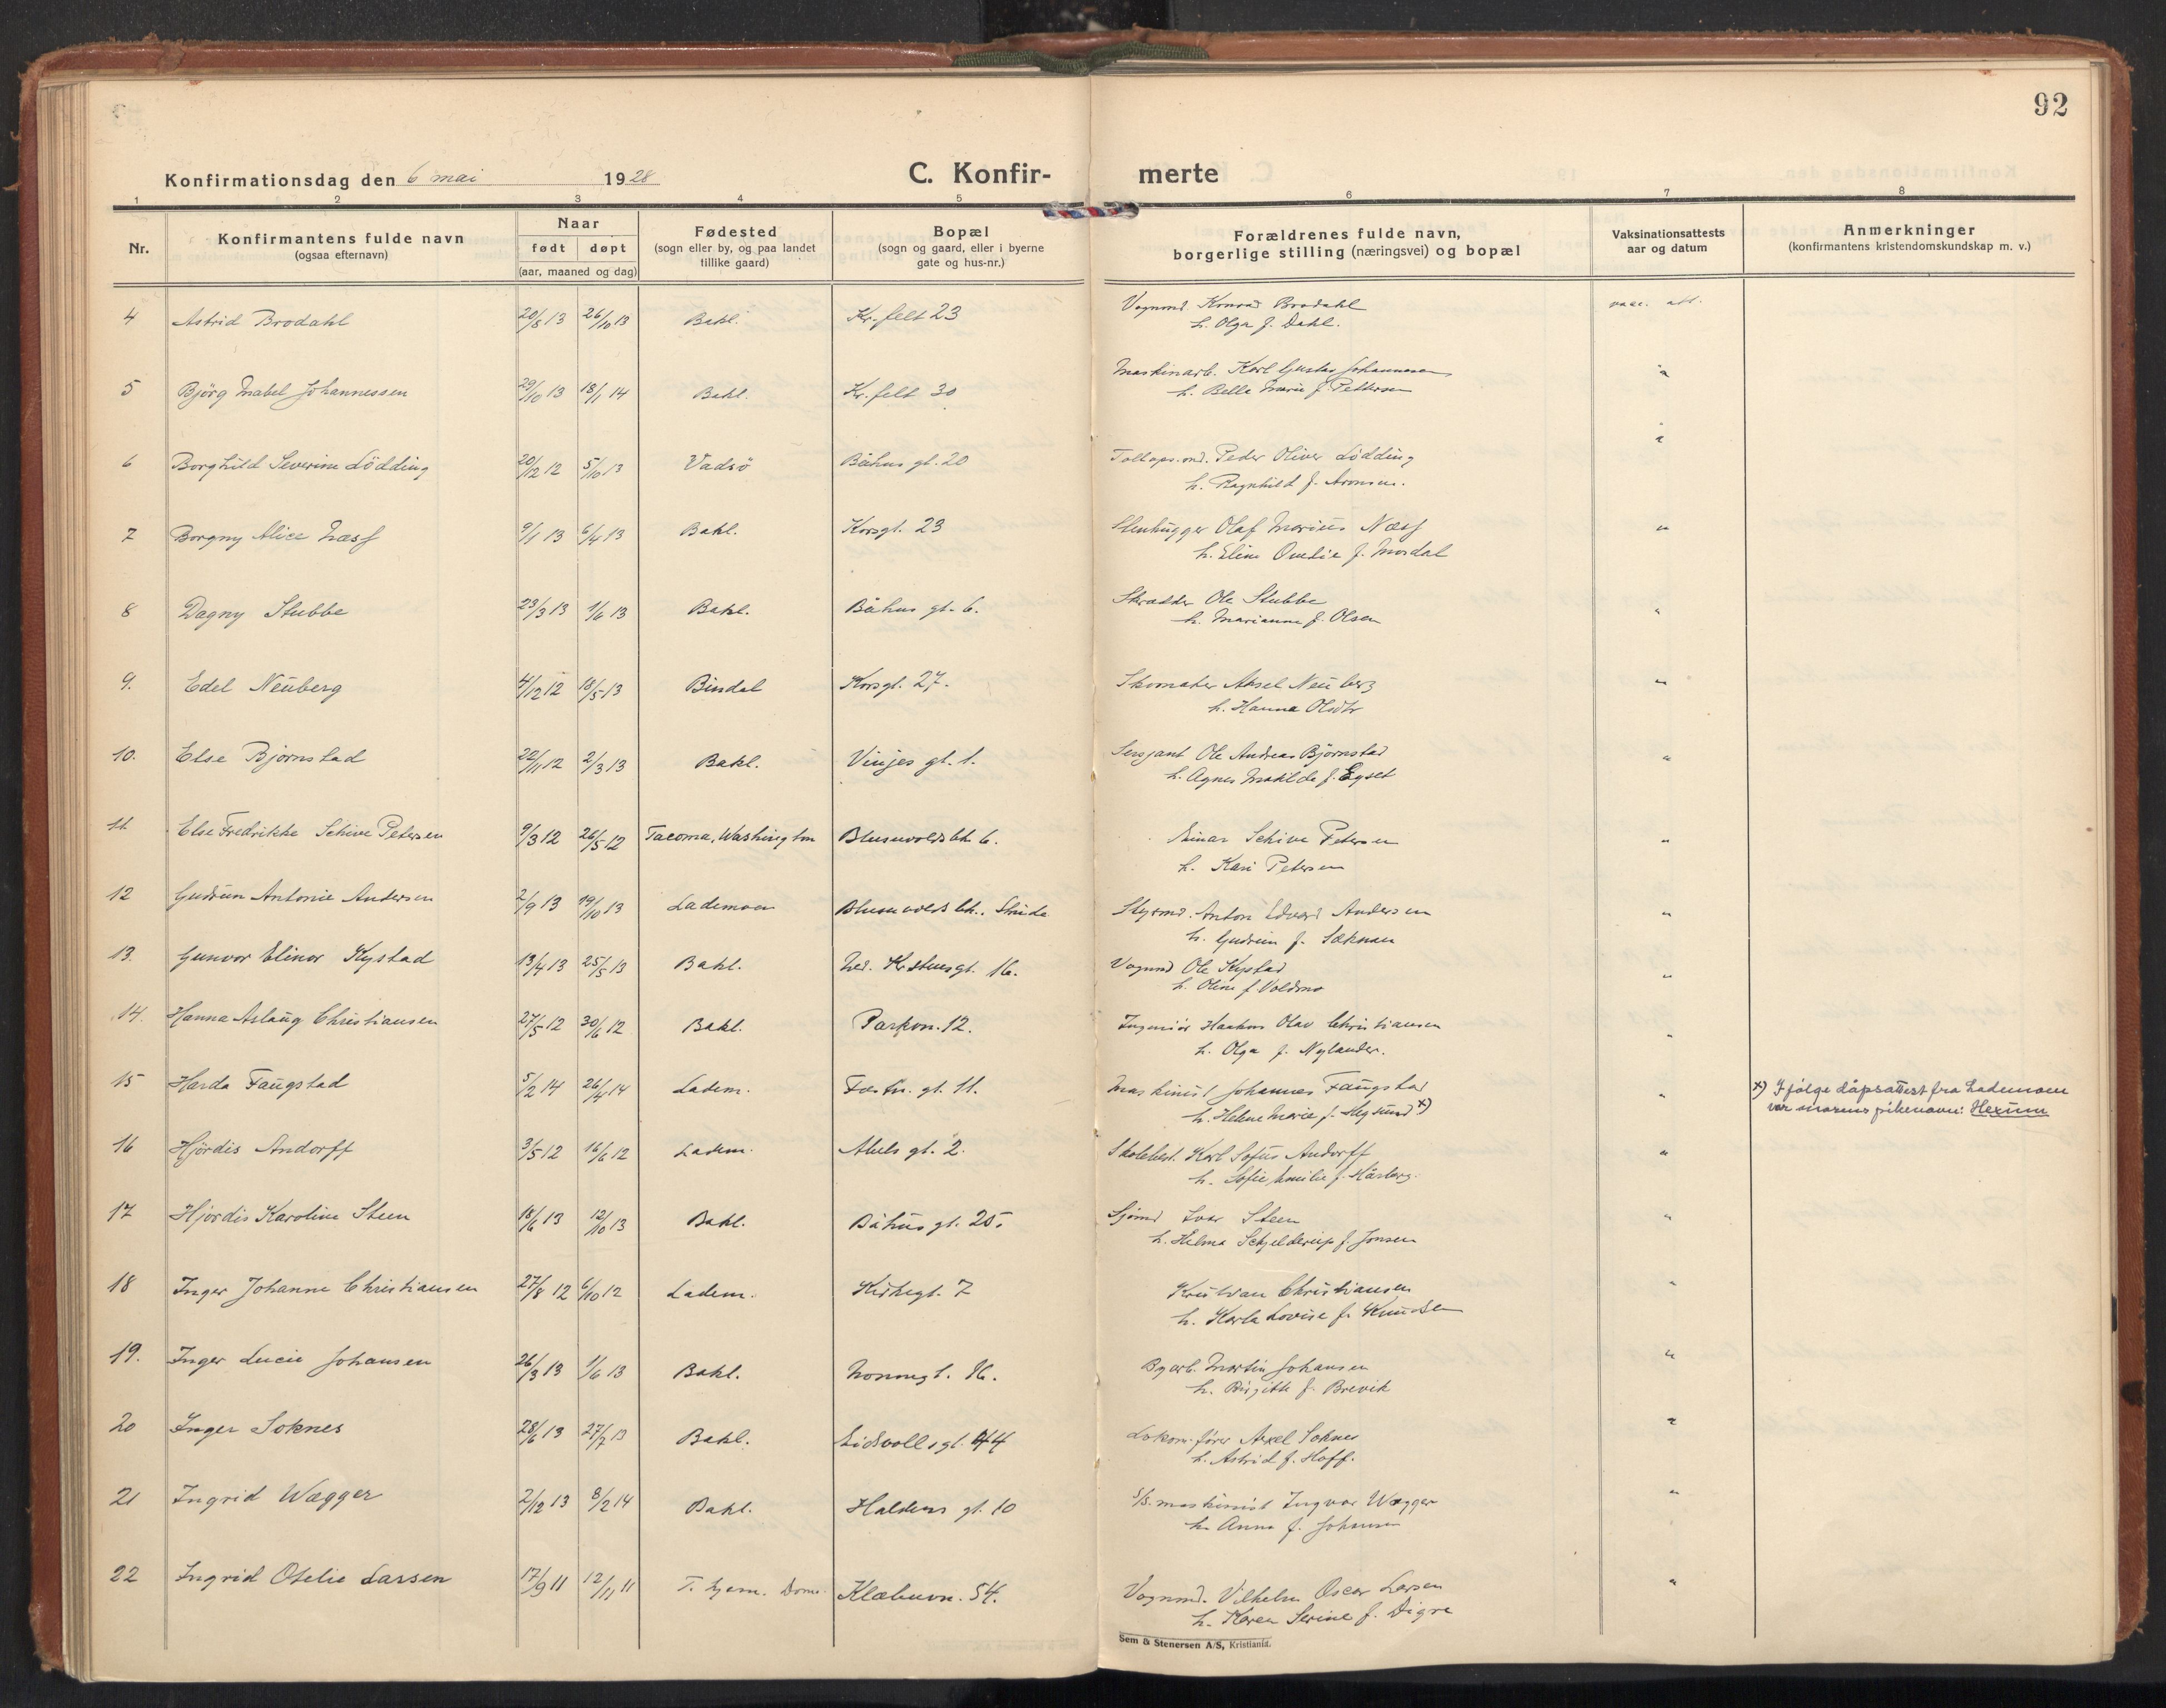 92
Konfirmationsdag den 6 mai 1928
C. Konfir- merte
1 2 3 4 5 6 7 8
Nr.
Konfirmantens fulde navn
(ogsaa efternavn)
Naar
født døpt
(aar, maaned og dag)
Fødested
(sogn eller by, og paa landet
tillike gaard)
Bopæl
(sogn og gaard, eller i byerne
gate og hus-nr.)
Forældrenes fulde navn,
borgerlige stilling (næringsvei) og bopæl
Vaksinationsattests
aar og datum
Anmerkninger
(konfirmantens kristendomskundskap m. v.)
4 Astrid Brodahl 20/8 13 26/10 13 Bakl. Kr. felt 23 Vognmd. Konrad Brodahl vacc. att.
h. Olga f. Dahl.
5 Björg Mabel Johannessen 29/10 13 18/1 14 Bakl. Kr. felt 30 Maskinarb. Karl Gustav Johannesen "
h. Bella Marie f. Pettersen
6 Borghild Severine Lödding 20/12 12 5/10 13 Vadsö Båhus gt. 20 Peder Oliver Lödding "
h. Ragnhild f. Aronsen.
7 Borgny Alice Næss 9/1 13 6/4 13 Bakl. Korsgt. 23 Stenhugger Olaf Marius Næss "
h. Eline Ovedie f. Mosdal
8 Dagny Stubbe 23/3 13 1/6 13 Bakl. Båhus gt. 6. Skrædder Ole Stubbe "
h. Marianne f. Olsen
9. Edel Neuberg 4/12 12 18/5 13 Bindal Korsgt. 27. Skomaker Aksel Neuberg "
h. Hanna Olsdtr
10. Else Bjørnstad 22/11 12 2/3 13 Bakl. Vinjes gt. 1. Sersjant Ole Andreas Bjørnstad "
h. Agnes Matilde f. Egset
11. Else Fredrikke Schive Petersen 9/3 12 26/5 12 Tacoma, Washington Blusuvoldsbk. 6. Einar Schive Petersen "
h. Kari Petersen
12 Gudrun Antonie Andersen 2/9 13 19/10 13 Lademoen Blusuvoldsbk., Strinda Styrmd. Anton Edvard Andersen "
h. Gudrun f. Sæknæn
13. Gunvor Elinor Kystad 13/4 13 25/5 13 Bakl. Ned. Kristensgt. 16. Vognmd Ole Kystad "
h. Oline f. Voldmo
14. Hanna Aslaug Christiansen 27/5 12 30/6 12 Bakl. Parkvn. 12. Ingeniør Haakon Olav Christiansen "
h. Olga f. Nylander.
15 Harda Faugstad 5/2 14 26/4 14 Ladem. Festn. gt. 11. Maskinist Johannes Faugstad "
h. Helene Marie f. Hegsund x)
x) Ifølge dåpsattest fra Lademoen
var morens pikenavn: Hexum
16 Hjördis Andorff 3/5 12 16/6 12 Ladem. Abels gt. 2. Skolebest. Karl Sofus Andorff "
h. Sofie Emilie f. Hårberg.
17 Hjørdis Karoline Steen 18/6 13 12/10 13 Bakl. Båhus gt. 25. Sjømd Ivar Steen "
h. Helma Schjelderup f. Jonsen
18 Inger Johanne Christiansen 27/8 12 6/10 12 Ladem. Kirkegt. 7 Kristian Christiansen "
h. Karla Lovise f. Knudsen
19. Inger Lucie Johansen 26/3 13 1/6 13 Bakl. Nonnegt. 16. Byarb. Martin Johansen "
h. Birgitte f. Brevik
20 Inger Soknes 28/6 13 27/7 13 Bakl. Eidsvollsgt. 44 Lokom.fører Axel Soknes "
h. Astrid f. Hoff.
21 Ingrid Wægger 2/12 13 8/2 14 Bakl. Haldens gt. 10 S/S. maskinist Ingvar Wægger "
h. Anna f. Johansen
22 Ingrid Otelie Larsen 17/9 11 12/11 11 T. hjem. Dom. Klæbuvn. 54. Vognmd. Vilhelm Oscar Larsen "
h. Karen Serine f. Digre
Sem & Stenersen A/S, Kristiania.